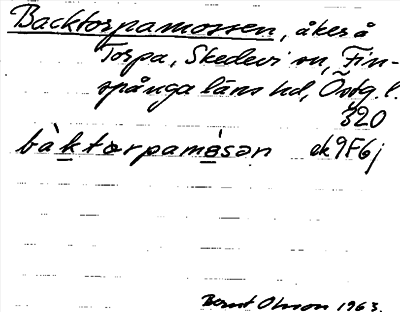 Backtorpamossen, åker å
Torpa, Skedevi sn, Fin-
spånga läns hd, Östg. l.
320
bàktorpamòsən ek9F6j
Bernt Olsson 1963.